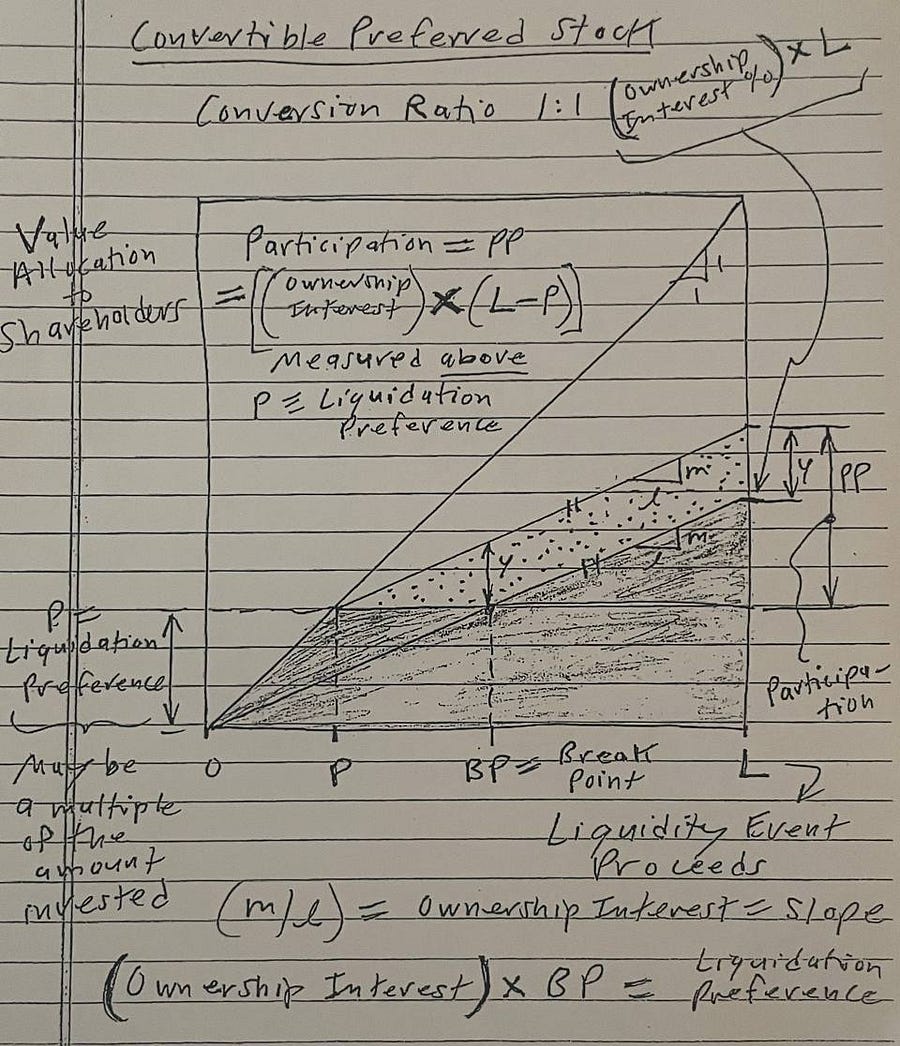 Convertible Preferred Stock
Conversion Ratio 1:1 (Ownership Interest %) × L
Value
Allocation
to
Shareholders
Participation = PP
= [(Ownership Interest) × (L-P)]
Measured above
P ≡ Liquidation
Preference
1
1
m
l
m
l
Y
Y
PP
P =
Liquidation
Preference
May be
a multiple
of the
amount
invested
Participa-
tion
0
P
BP = Break
Point
L
Liquidity Event
Proceeds
(m/l) = Ownership Interest = Slope
(Ownership Interest) × BP = Liquidation
Preference